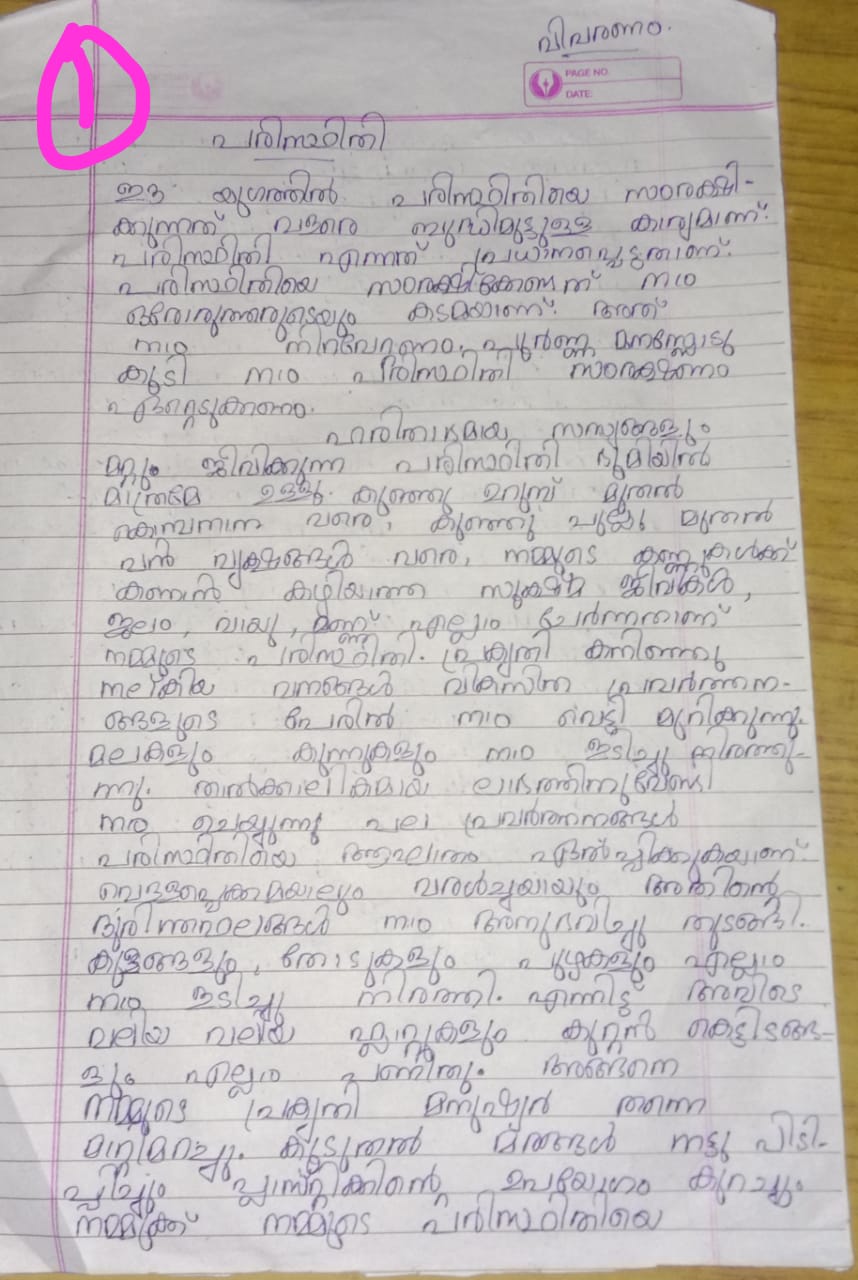 1
വിവരണം.
PAGE NO.
DATE:
പരിസ്ഥിതി
ഈ യുഗത്തിൽ പരിസ്ഥിതിയെ സംരക്ഷി-
ക്കുന്നത് വളരെ ബുദ്ധിമുട്ടുള്ള കാര്യമാണ്.
പരിസ്ഥിതി എന്നത് പ്രധാനപ്പെട്ടതാണ്.
പരിസ്ഥിതിയെ സംരക്ഷിക്കേണ്ടത് നാം
ഒരോരുത്തരുടെയും കടമയാണ്. അത്
നാം നിറവേറ്റണം. പൂർണ്ണ മനസ്സോടു
കൂടി നാം പരിസ്ഥിതി സംരക്ഷണം
ഏറ്റെടുക്കണം.
ഹരിതാഭമായ സസ്യങ്ങളും
മറ്റും ജീവിക്കുന്ന പരിസ്ഥിതി ഭൂമിയിൽ
മാത്രമേ ഉള്ളു. കുഞ്ഞു ഉറുമ്പ് മുതൽ
കൊമ്പനാന വരെ, കുഞ്ഞു പുല്ലു മുതൽ
വൻ വൃക്ഷങ്ങൾ വരെ, നമ്മുടെ കണ്ണുകൾക്ക്
കാണാൻ കഴിയാത്ത സൂക്ഷ്മ ജീവികൾ,
ജലം, വായു, മണ്ണ് എല്ലാം ചേർന്നതാണ്
നമ്മുടെ പരിസ്ഥിതി. പ്രകൃതി കനിഞ്ഞു
നല്കിയ വനങ്ങൾ വികസിത പ്രവർത്തന-
ങ്ങളുടെ പേരിൽ നാം വെട്ടി മുറിക്കുന്നു.
മലകളും കുന്നുകളും നാം ഇടിച്ചു നിരത്തു-
ന്നു. താൽക്കാലികമായ ലാഭത്തിനുവേണ്ടി
നാം ചെയ്യുന്ന പല പ്രവർത്തനങ്ങൾ
പരിസ്ഥിതിയെ ആഘാതം ഏൽപ്പിക്കുകയാണ്.
വെള്ളപ്പൊക്കമായും വരൾച്ചയായും അതിന്റെ
ദുരിതഫലങ്ങൾ നാം അനുഭവിച്ചു തുടങ്ങി.
കുളങ്ങളും, തോടുകളും പുഴകളും എല്ലാം
നാം ഇടിച്ചു നിരത്തി. എന്നിട്ട് അവിടെ
വലിയ വലിയ ഫ്ലാറ്റുകളും കൂറ്റൻ കെട്ടിടങ്ങ-
ളും എല്ലാം പണിതു. അങ്ങനെ
നമ്മുടെ പ്രകൃതി മനുഷ്യൻ തന്നെ
മാറ്റിമറച്ചു. കൂടുതൽ മരങ്ങൾ നട്ടു പിടി-
പ്പിച്ചും പ്ലാസ്റ്റിക്കിന്റെ ഉപയോഗം കുറച്ചും
നമുക്ക് നമ്മുടെ പരിസ്ഥിതിയെ